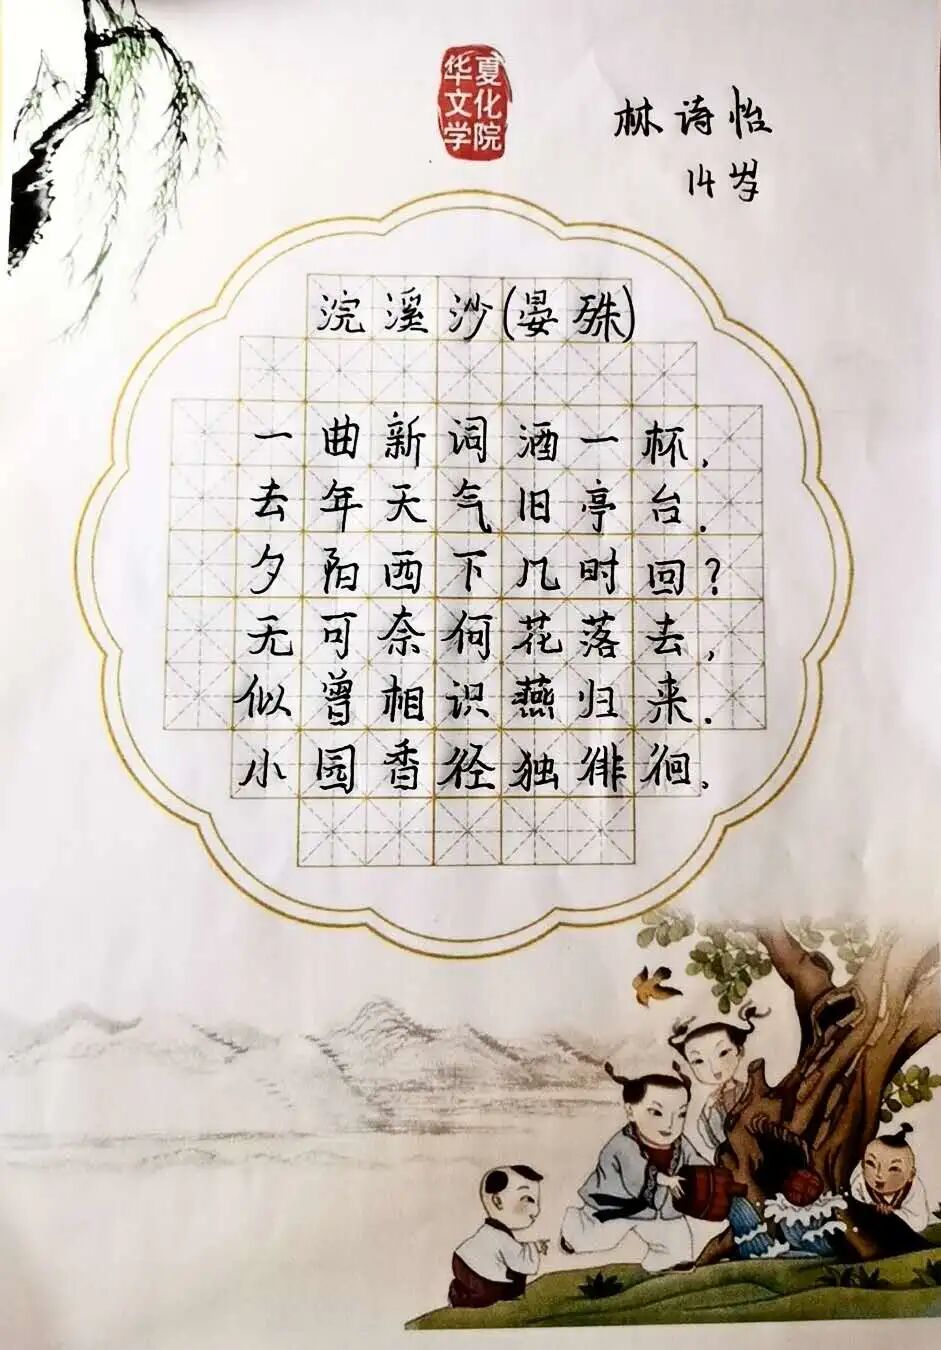 华夏文化学院
林诗怡
14岁
浣溪沙(晏殊)
一曲新词酒一杯,
去年天气旧亭台.
夕阳西下几时回?
无可奈何花落去,
似曾相识燕归来.
小园香径独徘徊。